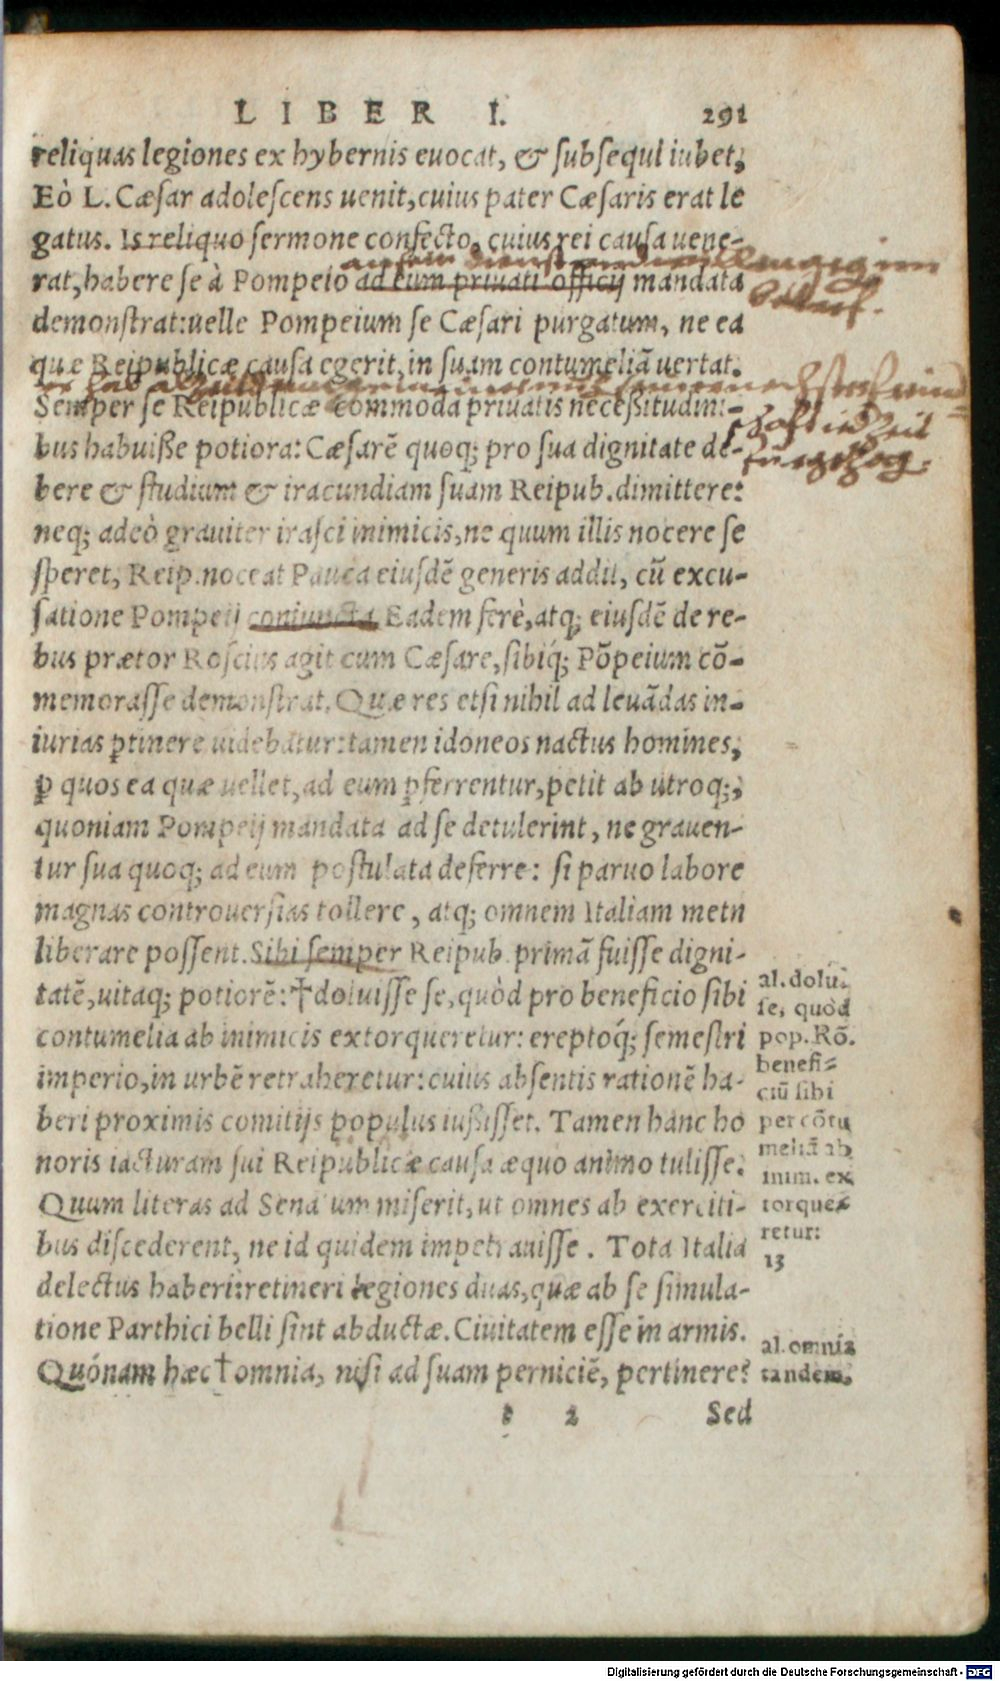 LIBER I. 291
reliquas legiones ex hybernis euocat, & subsequi iubet;
Eò L. Cæsar adolescens uenit, cuius pater Cæsaris erat le
gatus. Is reliquo sermone confecto, cuius rei causa uene-
rat, habere se à Pompeio ad eum priuati officij mandata
demonstrat: uelle Pompeium se Cæsari purgatum, ne ea
quæ Reipublicæ causa egerit, in suam contumeliā uertat.
Semper se Reipublicæ commoda priuatis necessitudini-
bus habuisse potiora: Cæsarē quoq; pro sua dignitate de-
bere & studium & iracundiam suam Reipub. dimittere:
neq; adeò grauiter irasci inimicis, ne quum illis nocere se
speret, Reip. noceat Pauca eiusdē generis addit, cū excu-
satione Pompeij coniuncta Eadem ferè, atq; eiusdē de re-
bus prætor Roscius agit cum Cæsare, sibiq́; Pōpeium cō-
memorasse demonstrat. Quæ res etsi nihil ad leuādas in-
iurias ꝑtinere uidebatur: tamen idoneos nactus homines,
ꝑ quos ea quæ uellet, ad eum ꝑferrentur, petit ab utroq;,
quoniam Pompeij mandata ad se detulerint, ne grauen-
tur sua quoq; ad eum postulata deferre: si paruo labore
magnas controuersias tollere, atq; omnem Italiam metu
liberare possent. Sibi semper Reipub. primā fuisse digni-
tatē, uitaq; potiorē: †doluisse se, quòd pro beneficio sibi
contumelia ab inimicis extorqueretur: ereptoq́; semestri
imperio, in urbē retraheretur: cuius absentis rationē ha-
beri proximis comitijs populus iussisset. Tamen hanc ho
noris iacturam sui Reipublicæ causa æquo animo tulisse.
Quum literas ad Senatum miserit, ut omnes ab exerciti-
bus discederent, ne id quidem impetrauisse. Tota Italia
delectus haberi: retineri legiones duas, quæ ab se simula-
tione Parthici belli sint abductæ. Ciuitatem esse in armis.
Quónam hæc †omnia, nisi ad suam perniciē, pertinere?
t 2 Sed
al. dolui.
se, quòd
pop. Rō.
benefi-
ciū sibi
per cōtu
meliā ab
inim. ex
torque-
retur:
13
al. omnia
tandem,
Digitalisierung gefördert durch die Deutsche Forschungsgemeinschaft - DFG